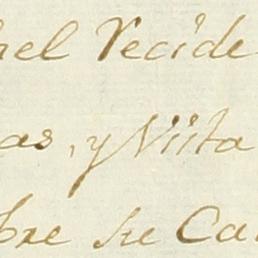 el Vecide
as, y Viita
bre su Ca